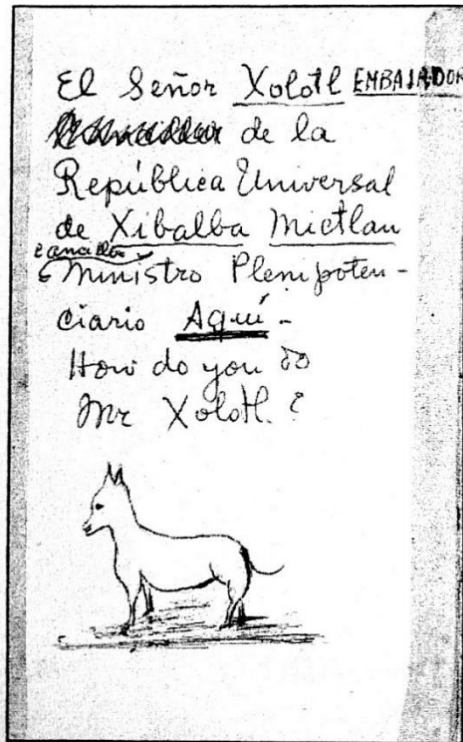 El Señor Xolotl EMBAJADOR
de la
República Universal
de Xibalba Mictlan
Canciller
Ministro Plenipoten-
ciario Aquí -
How do you do
Mr Xolotl. ?